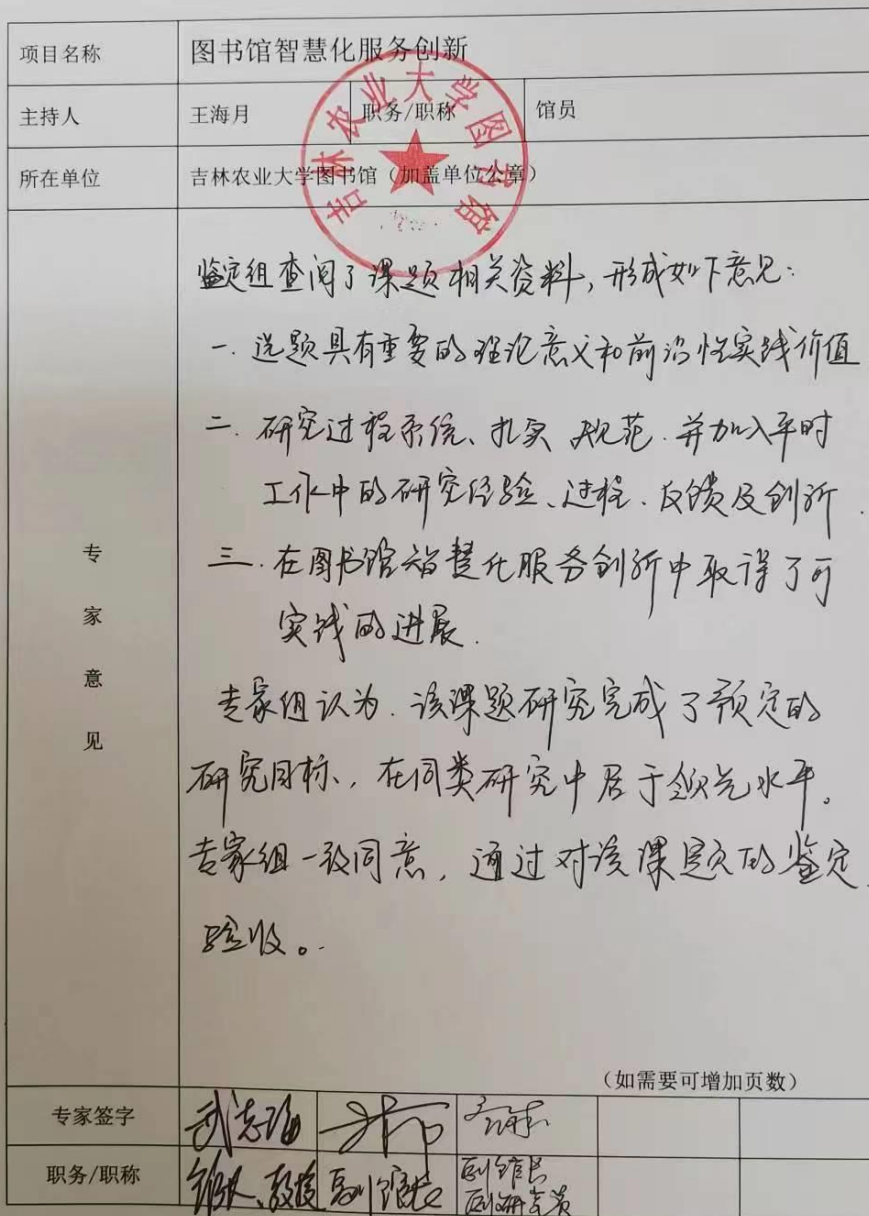 项目名称 图书馆智慧化服务创新
主持人 王海月 职务/职称 馆员
所在单位 吉林农业大学图书馆（加盖单位公章）
吉林农业大学图书馆
专家意见
鉴定组查阅了课题相关资料，形成如下意见：
一. 选题具有重要的理论意义和前沿性实践价值
二. 研究过程系统、扎实 规范. 并加入平时
工作中的研究经验、过程、反馈及创新.
三. 在图书馆智慧化服务创新中取得了可
实践的进展.
专家组认为. 该课题研究完成了预定的
研究目标、在同类研究中居于领先水平。
专家组一致同意，通过对该课题的鉴定
验收。
（如需要可增加页数）
专家签字
职务/职称 馆长、教授 副馆长 副馆长
副研究员